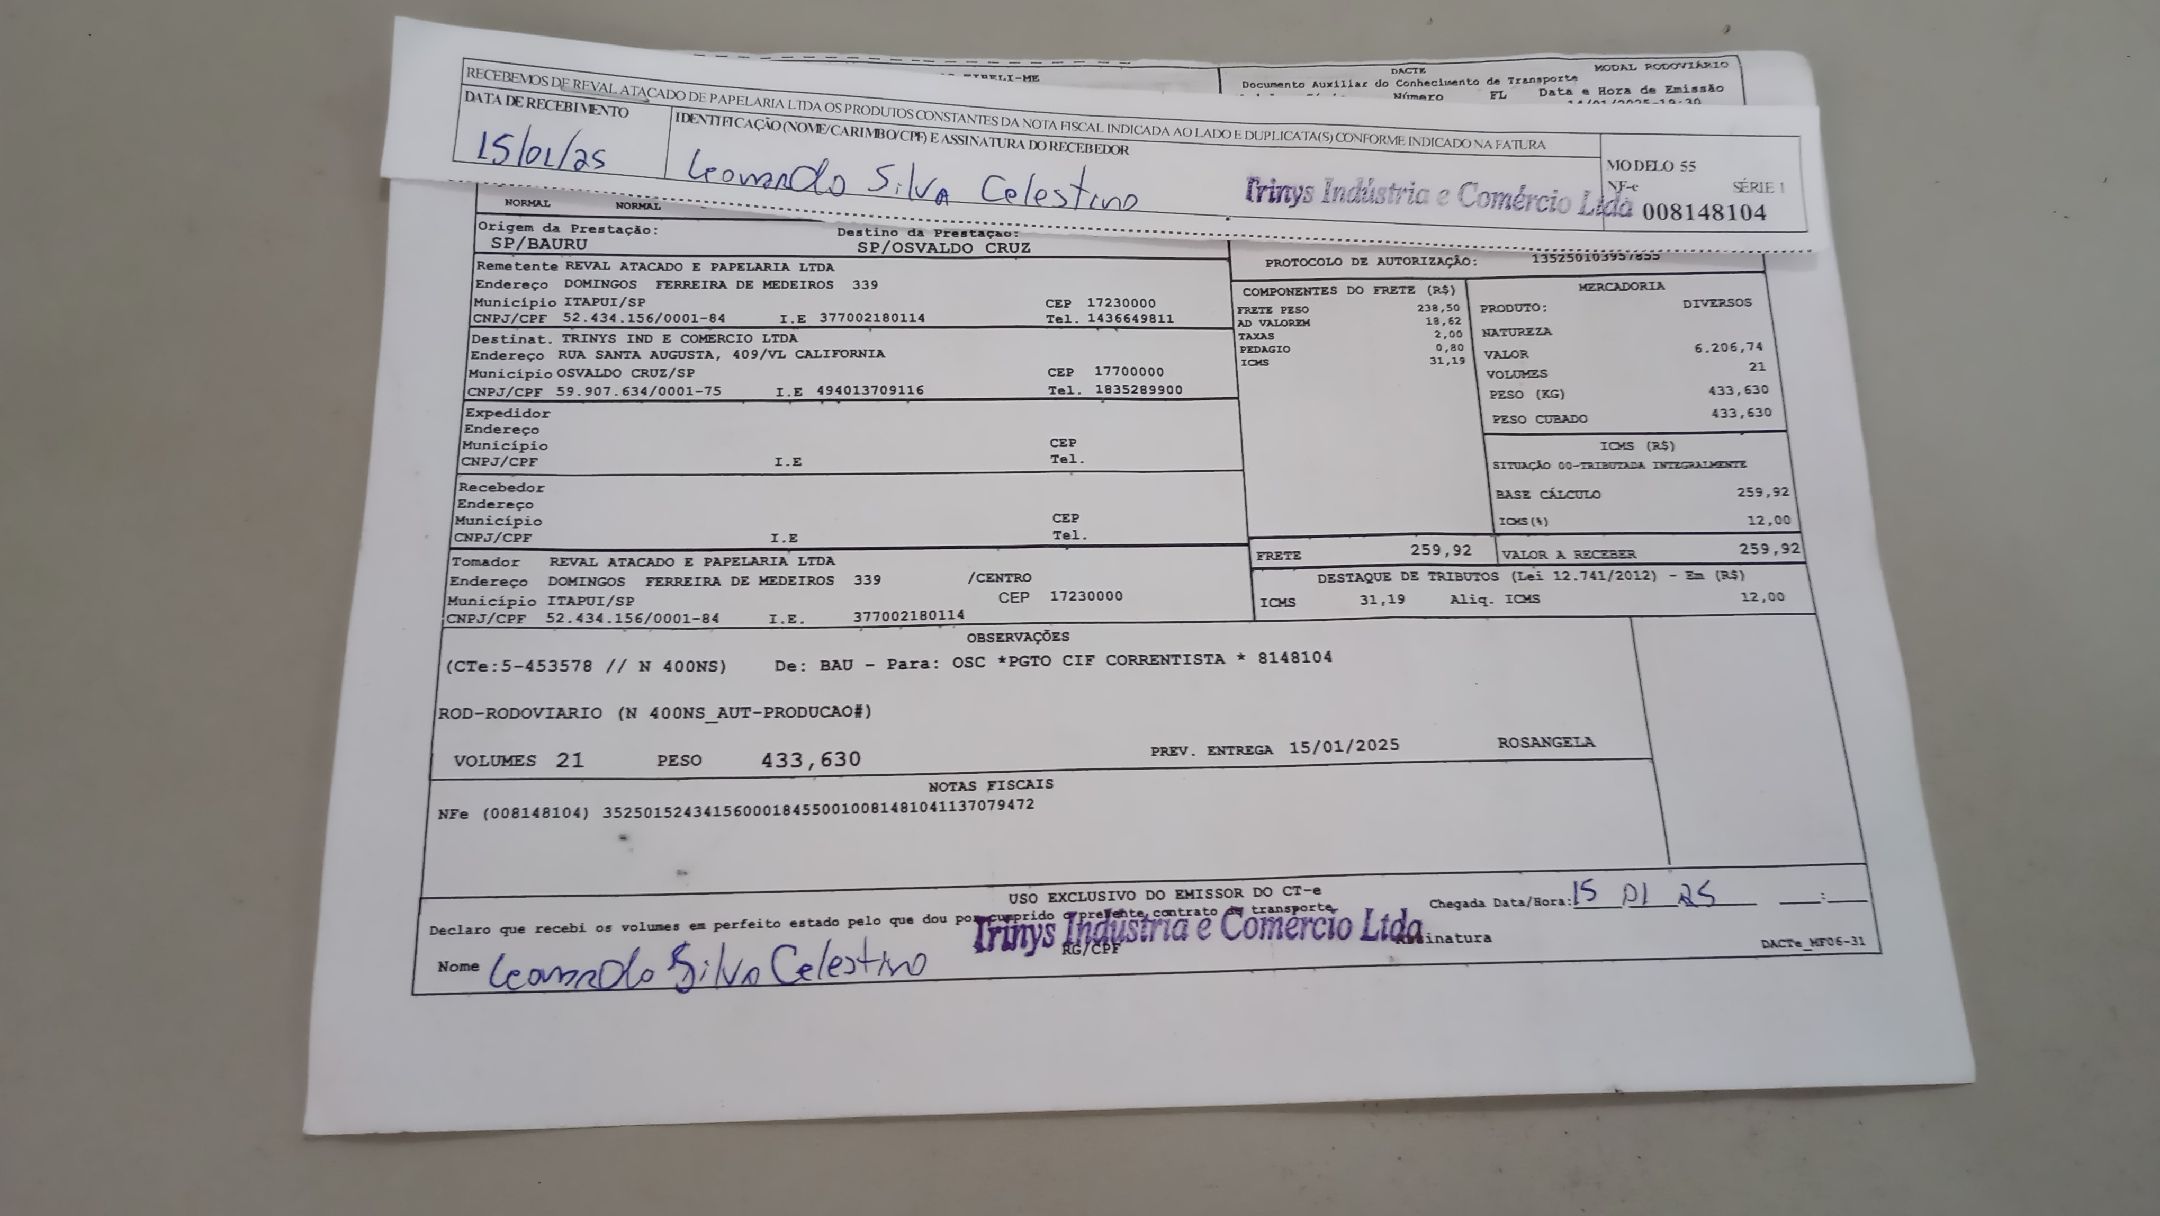 RECEBEMOS DE REVAL ATACADO DE PAPELARIA LTDA OS PRODUTOS CONSTANTES DA NOTA FISCAL INDICADA AO LADO E DUPLICATA(S) CONFORME INDICADO NA FATURA
DATA DE RECEBIMENTO
15/01/25
IDENTIFICAÇÃO (NOME/CARIMBO/CPF) E ASSINATURA DO RECEBEDOR
Leonardo Silva Celestino
Trinys Indústria e Comércio Ltda
MODELO 55
NF-e SÉRIE 1
008148104
DACTE MODAL RODOVIÁRIO
Documento Auxiliar do Conhecimento de Transporte
Número FL Data e Hora de Emissão
NORMAL NORMAL
Origem da Prestação: Destino da Prestação:
SP/BAURU SP/OSVALDO CRUZ
PROTOCOLO DE AUTORIZAÇÃO: 135250103957855
Remetente REVAL ATACADO E PAPELARIA LTDA
Endereço DOMINGOS FERREIRA DE MEDEIROS 339
Município ITAPUI/SP CEP 17230000
CNPJ/CPF 52.434.156/0001-84 I.E 377002180114 Tel. 1436649811
Destinat. TRINYS IND E COMERCIO LTDA
Endereço RUA SANTA AUGUSTA, 409/VL CALIFORNIA
Município OSVALDO CRUZ/SP CEP 17700000
CNPJ/CPF 59.907.634/0001-75 I.E 494013709116 Tel. 1835289900
Expedidor
Endereço
Município CEP
CNPJ/CPF I.E Tel.
Recebedor
Endereço
Município CEP
CNPJ/CPF I.E Tel.
Tomador REVAL ATACADO E PAPELARIA LTDA
Endereço DOMINGOS FERREIRA DE MEDEIROS 339 /CENTRO
Município ITAPUI/SP CEP 17230000
CNPJ/CPF 52.434.156/0001-84 I.E. 377002180114
COMPONENTES DO FRETE (R$)
FRETE PESO 238,50
AD VALOREM 18,62
TAXAS 2,00
PEDAGIO 0,80
ICMS 31,19
MERCADORIA
PRODUTO: DIVERSOS
NATUREZA
VALOR 6.206,74
VOLUMES 21
PESO (KG) 433,630
PESO CUBADO 433,630
ICMS (R$)
SITUAÇÃO 00-TRIBUTADA INTEGRALMENTE
BASE CÁLCULO 259,92
ICMS(%) 12,00
FRETE 259,92 VALOR A RECEBER 259,92
DESTAQUE DE TRIBUTOS (Lei 12.741/2012) - Em (R$)
ICMS 31,19 Aliq. ICMS 12,00
OBSERVAÇÕES
(CTe:5-453578 // N 400NS) De: BAU - Para: OSC *PGTO CIF CORRENTISTA * 8148104
ROD-RODOVIARIO (N 400NS_AUT-PRODUCAO#)
VOLUMES 21 PESO 433,630 PREV. ENTREGA 15/01/2025 ROSANGELA
NOTAS FISCAIS
NFe (008148104) 35250152434156000184550010081481041137079472
USO EXCLUSIVO DO EMISSOR DO CT-e
Declaro que recebi os volumes em perfeito estado pelo que dou por cumprido o presente contrato de transporte
Chegada Data/Hora: 15 01 25 :
Trinys Indústria e Comércio Ltda
Nome Leonardo Silva Celestino RG/CPF Assinatura
DACTe_MF06-31